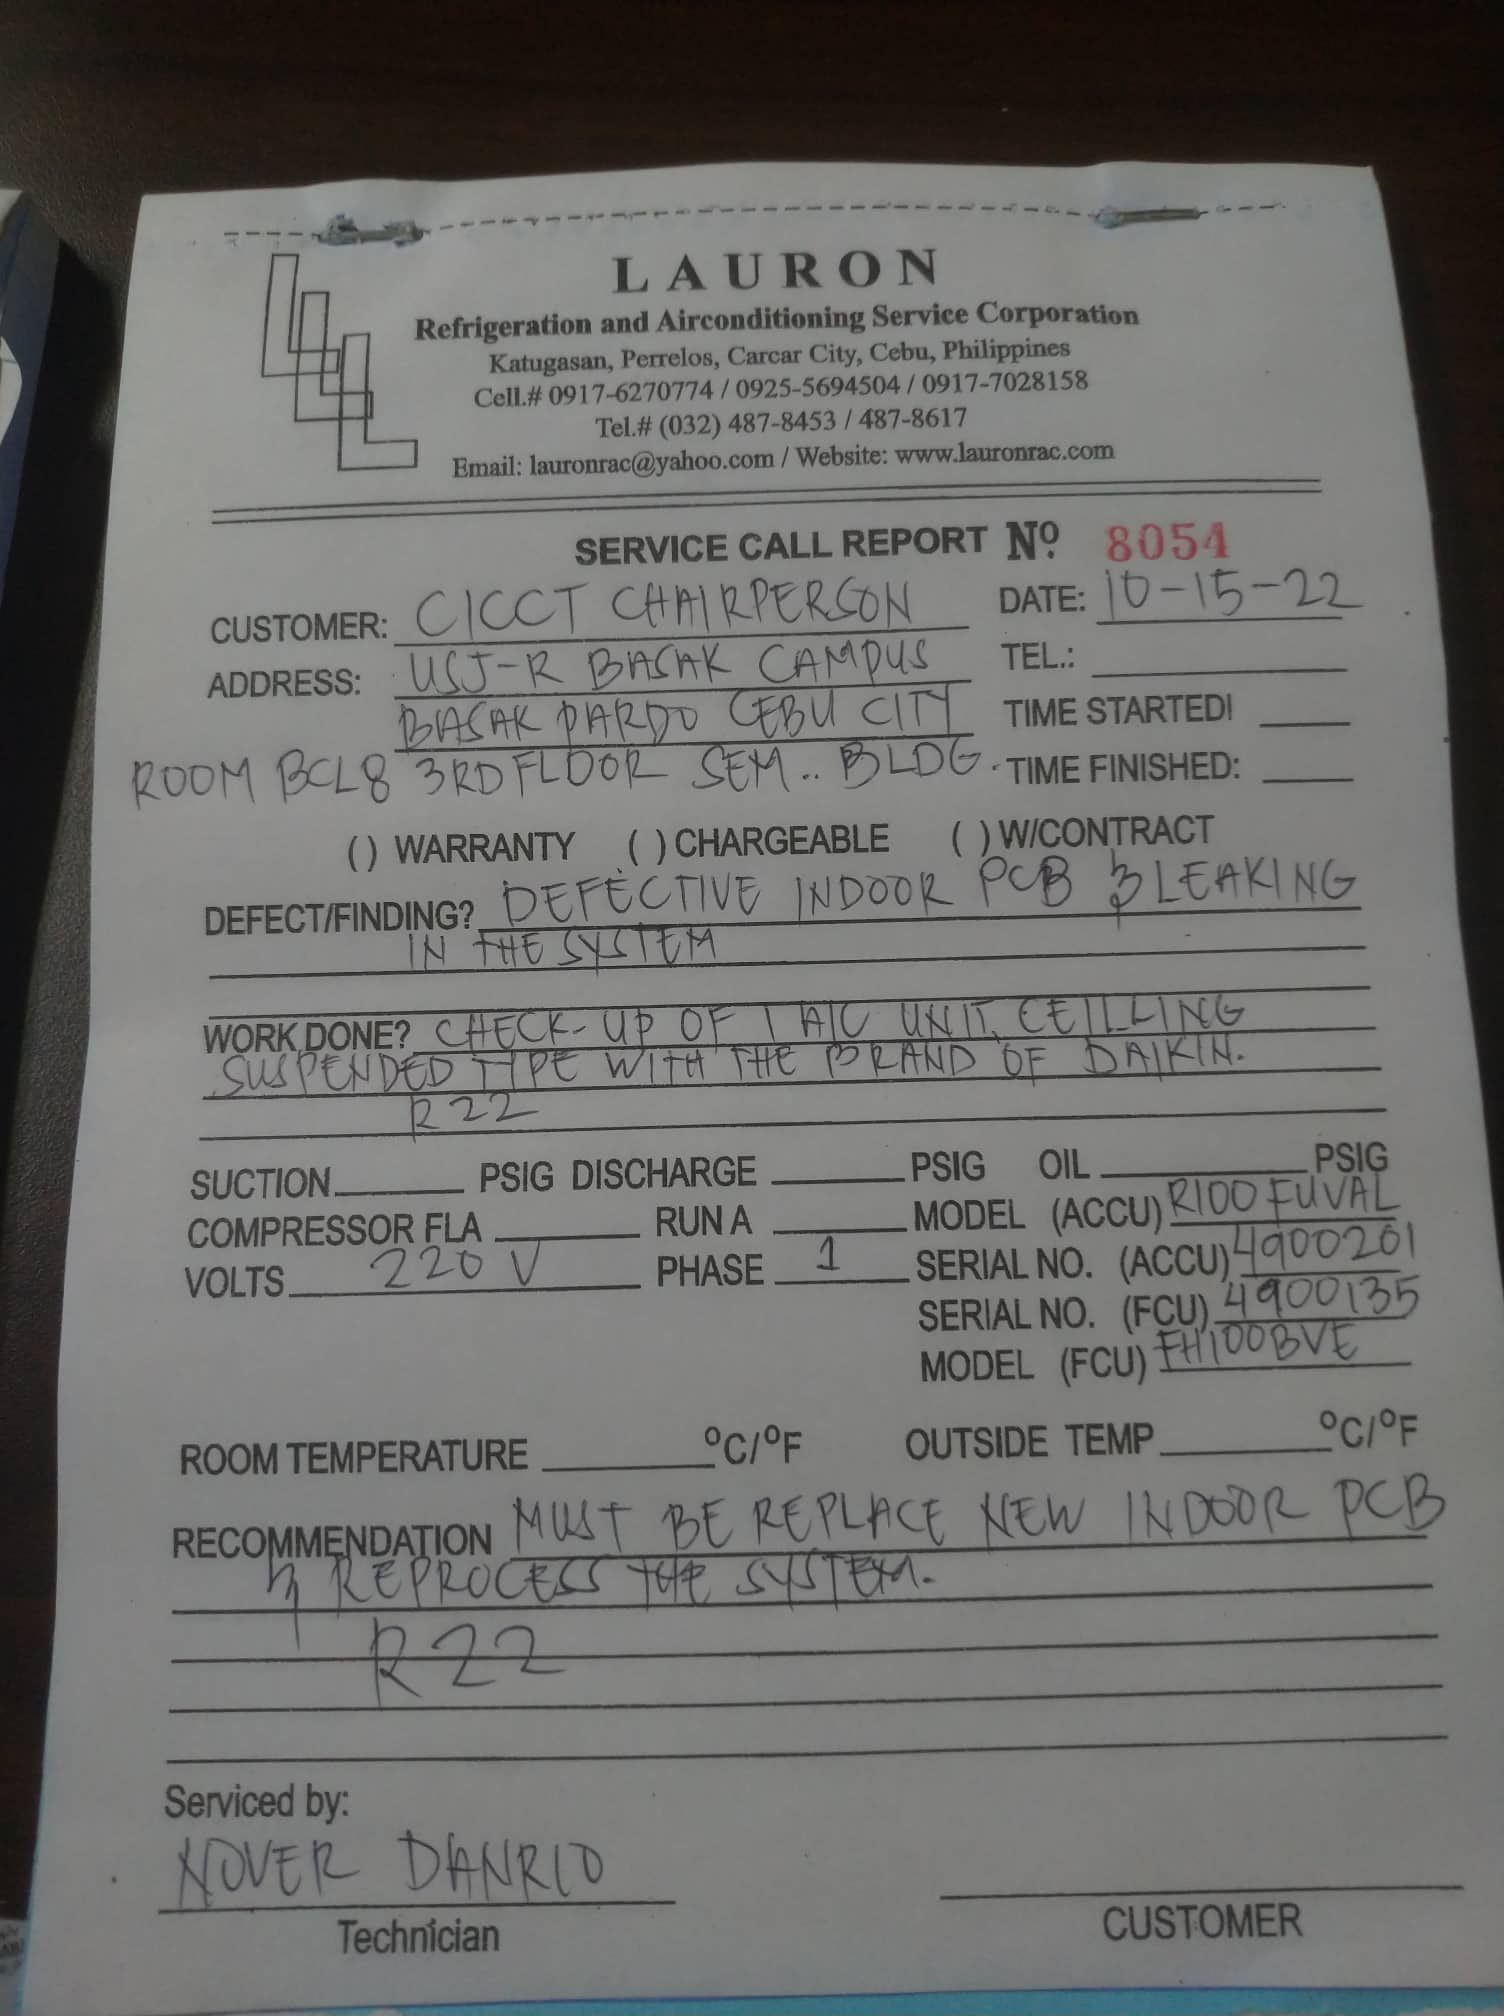 LAURON
Refrigeration and Airconditioning Service Corporation
Katugasan, Perrelos, Carcar City, Cebu, Philippines
Cell.# 0917-6270774 / 0925-5694504 / 0917-7028158
Tel.# (032) 487-8453 / 487-8617
Email: lauronrac@yahoo.com / Website: www.lauronrac.com
SERVICE CALL REPORT Nº 8054
CUSTOMER: CICCT CHAIRPERSON DATE: 10-15-22
ADDRESS: USJ-R BASAK CAMPUS TEL.:
BASAK PARDO CEBU CITY TIME STARTED!
ROOM BCL8 3RD FLOOR SEM.. BLDG. TIME FINISHED:
( ) WARRANTY ( ) CHARGEABLE ( ) W/CONTRACT
DEFECT/FINDING? DEFECTIVE INDOOR PCB & LEAKING
IN THE SYSTEM
WORK DONE? CHECK-UP OF 1 A/C UNIT, CEILLING
SUSPENDED TYPE WITH THE BRAND OF DAIKIN.
R22
SUCTION PSIG DISCHARGE PSIG OIL PSIG
COMPRESSOR FLA RUN A MODEL (ACCU) R100FUVAL
VOLTS 220 V PHASE 1 SERIAL NO. (ACCU) 4900201
SERIAL NO. (FCU) 4900135
MODEL (FCU) FH100BVE
ROOM TEMPERATURE ºC/ºF OUTSIDE TEMP ºC/ºF
RECOMMENDATION MUST BE REPLACE NEW INDOOR PCB
& REPROCESS THE SYSTEM.
R22
Serviced by:
NOVER DANRIO
Technician CUSTOMER